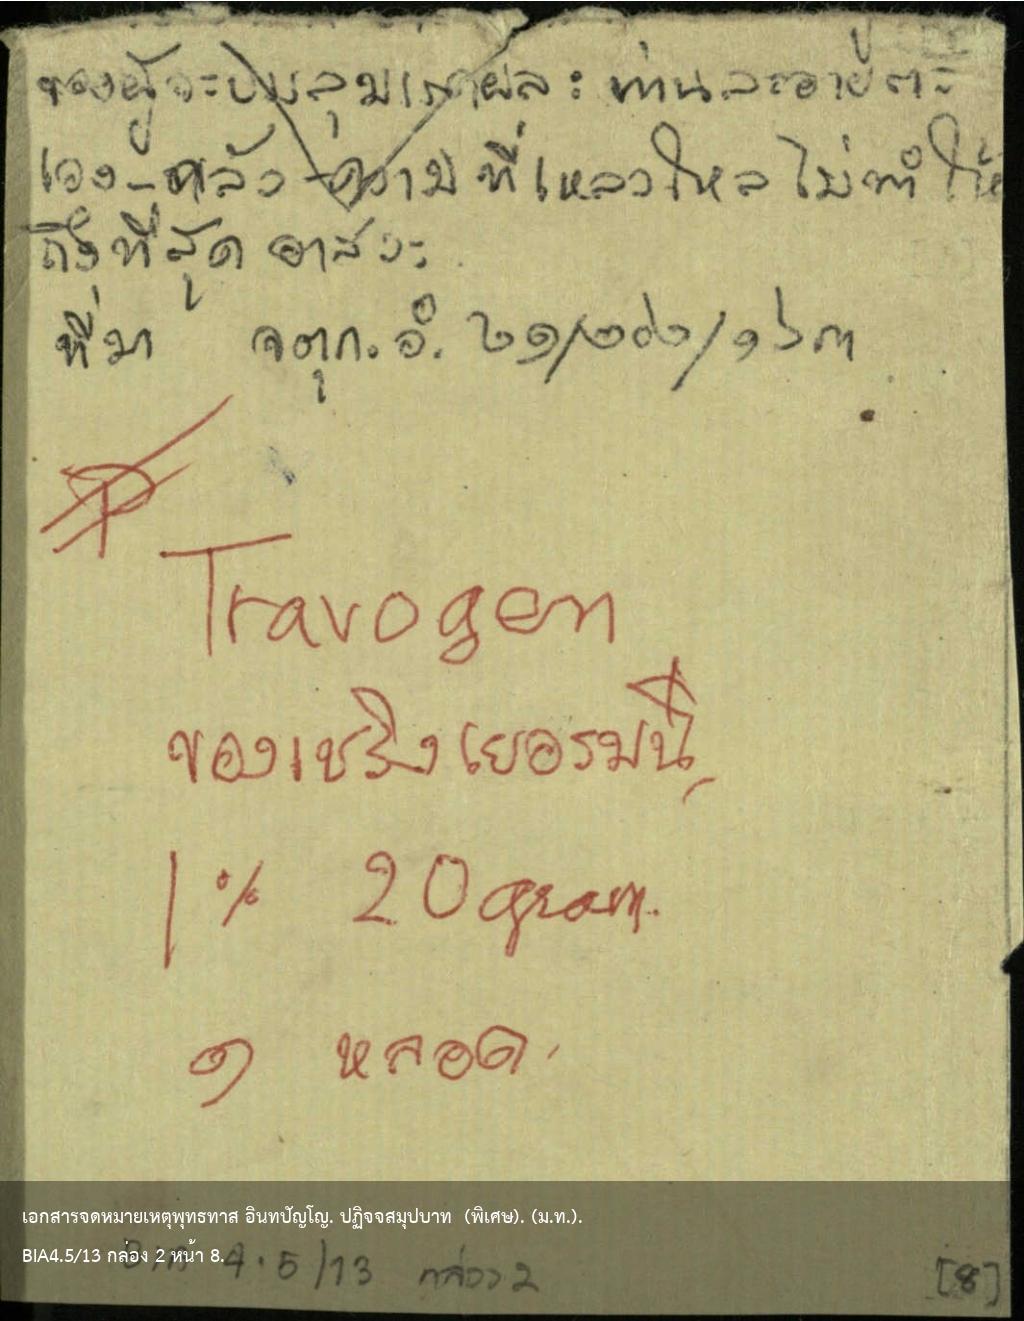 ของผู้จะบรรลุมรรคผล: ท่านละอายตะ
เอง กลัว ความที่เหลวไหล ไม่ทำให้
ถึงที่สุด อาสวะ
ที่มา จตุก.อํ. ๒๑/๒๐๖/๑๖๓
Travogen
ของเชริงเยอรมันนี
1% 20 gram.
๑ หลอด
เอกสารจดหมายเหตุพุทธทาส อินทปัญโญ. ปฏิจจสมุปบาท (พิเศษ). (ม.ท.).
BIA4.5/13 กล่อง 2 หน้า 8.
4.5/13 กล่อง 2
[8]